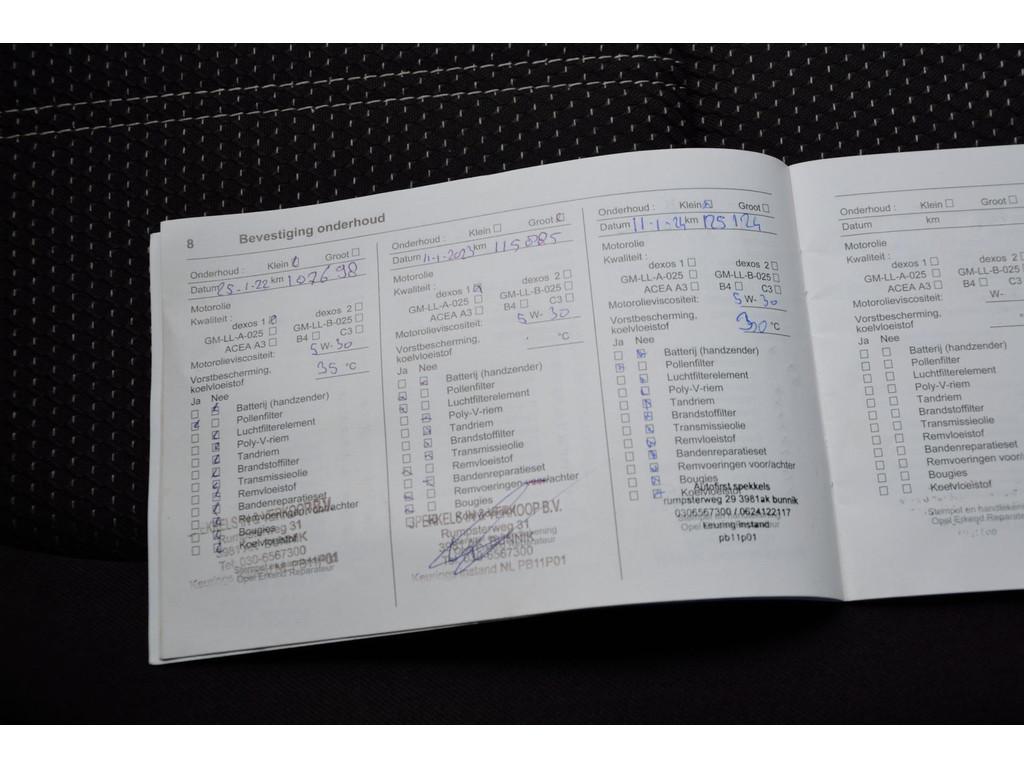 8 Bevestiging onderhoud
Onderhoud : Klein Groot
Datum 25-1-22 km 107698
Motorolie
Kwaliteit :
dexos 1 dexos 2
GM-LL-A-025 GM-LL-B-025
ACEA A3 B4 C3
Motorolieviscositeit: 5 W- 30
Vorstbescherming,
koelvloeistof 35 °C
Ja Nee
Batterij (handzender)
Pollenfilter
Luchtfilterelement
Poly-V-riem
Tandriem
Brandstoffilter
Transmissieolie
Remvloeistof
Bandenreparatieset
Remvoeringen voor/achter
Bougies
Koelvloeistof
Rumpsterweg 31
Tel. 030-6567300
Opel Erkend Reparateur
Onderhoud : Klein Groot
Datum 11-1-2023 km 115085
Motorolie
Kwaliteit :
dexos 1 dexos 2
GM-LL-A-025 GM-LL-B-025
ACEA A3 B4 C3
Motorolieviscositeit: 5 W- 30
Vorstbescherming,
koelvloeistof °C
Ja Nee
Batterij (handzender)
Pollenfilter
Luchtfilterelement
Poly-V-riem
Tandriem
Brandstoffilter
Transmissieolie
Remvloeistof
Bandenreparatieset
Remvoeringen voor/achter
Bougies
IN & VERKOOP B.V.
Rumpsterweg 31
BUNNIK
Keuringsinstand NL PB11P01
Onderhoud : Klein Groot
Datum 11-1-24 km 125124
Motorolie
Kwaliteit :
dexos 1 dexos 2
GM-LL-A-025 GM-LL-B-025
ACEA A3 B4 C3
Motorolieviscositeit: 5 W- 30
Vorstbescherming,
koelvloeistof 30 °C
Ja Nee
Batterij (handzender)
Pollenfilter
Luchtfilterelement
Poly-V-riem
Tandriem
Brandstoffilter
Transmissieolie
Remvloeistof
Bandenreparatieset
Remvoeringen voor/achter
Bougies
Koelvloeistof
Autofirst spekkels
rumpsterweg 29 3981ak bunnik
0306567300 / 0624122117
keuring instand
pb11p01
Onderhoud : Klein Groot
Datum km
Motorolie
Kwaliteit :
dexos 1 dexos
GM-LL-A-025 GM-LL-B-025
ACEA A3 B4 C3
Motorolieviscositeit: W-
Vorstbescherming,
koelvloeistof
Ja Nee
Batterij (handzender)
Pollenfilter
Luchtfilterelement
Poly-V-riem
Tandriem
Brandstoffilter
Transmissieolie
Remvloeistof
Bandenreparatieset
Remvoeringen voor/achter
Bougies
Koelvloeistof
Stempel en handteken
Opel Erkend Reparate